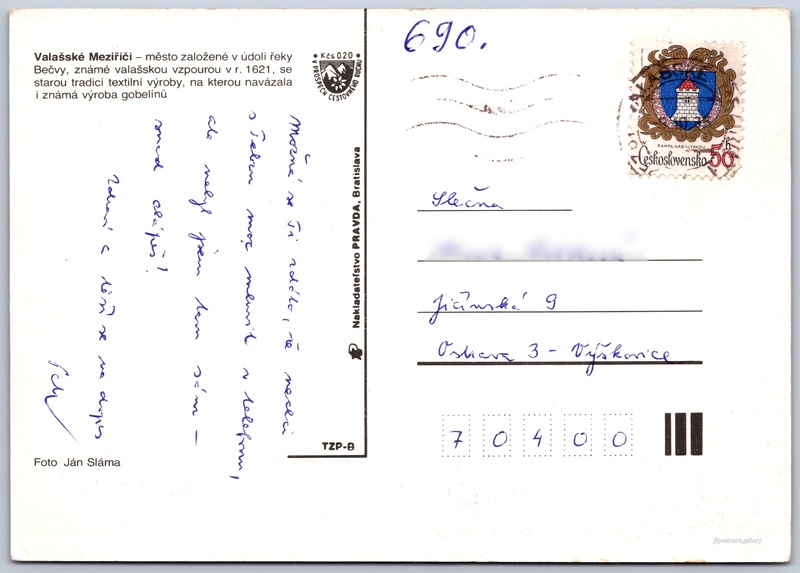 690.
Valašské Meziříčí – město založené v údolí řeky
Bečvy, známé valašskou vzpourou v r. 1621, se
starou tradicí textilní výroby, na kterou navázala
i známá výroba gobelínů
Kčs 0.20
V PROSPĚCH CESTOVNÍHO RUCHU
Možná se Ti zdálo, že nechci
s Tebou moc mluvit v telefonu,
ale nebyl jsem tam sám –
snad chápeš!
Zdraví a těší se na dopis
Nakladateľstvo PRAVDA, Bratislava
TZP-B
Foto Ján Sláma
KAMÝK NAD VLTAVOU
Československo 50 h
Slečna
Jičínská 9
Ostrava 3 – Výškovice
70400